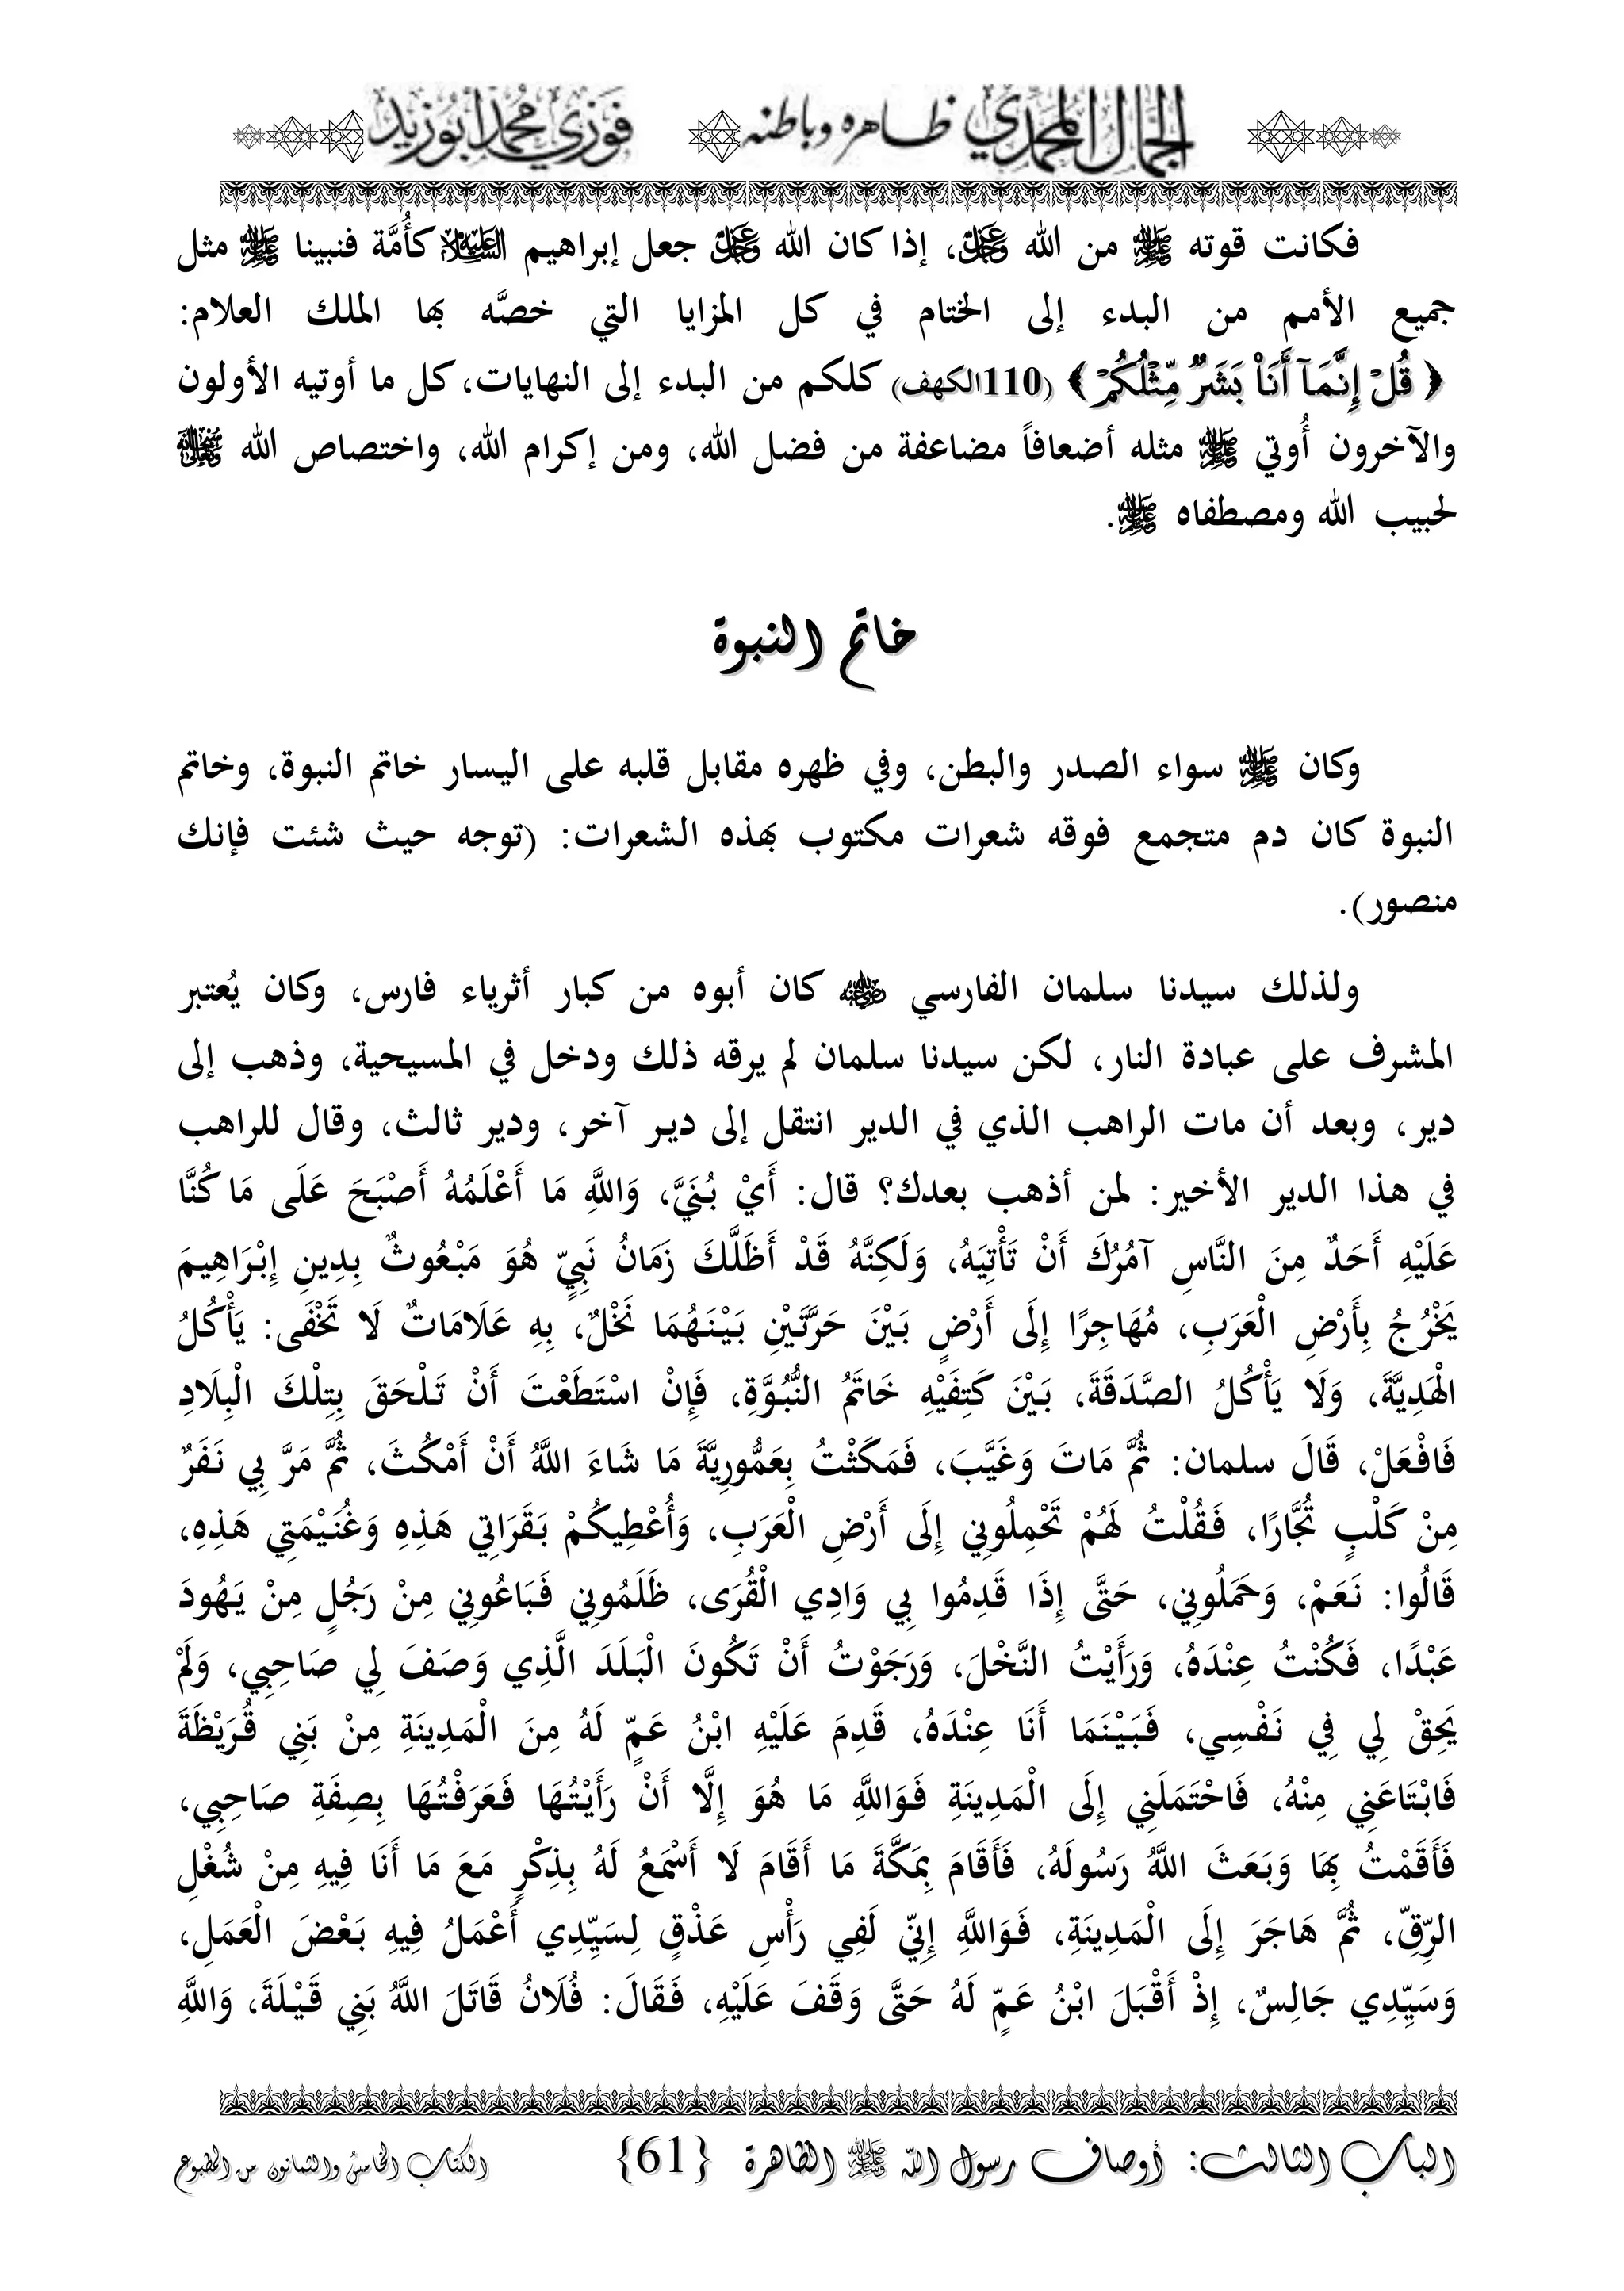 الجمال المحمدي ظاهره وباطنه فوزي محمد أبوزيد
فكانت قوته ﷺ من الله عز وجل، إذا كان الله عز وجل جعل إبراهيم عليه السلام كأُمَّة فنبينا ﷺ مثل
جميع الأمم من البدء إلى الختام في كل المزايا التي خصَّه بها الملك العلام:
﴿ قُلْ إِنَّمَآ أَنَا۠ بَشَرٌ مِّثْلُكُمْ ﴾ (110الكهف) كلكم من البدء إلى النهايات، كل ما أوتيه الأولون
والآخرون أُوتي ﷺ مثله أضعافاً مضاعفة من فضل الله، ومن إكرام الله، واختصاص الله
لحبيب الله ومصطفاه ﷺ.
خاتم النبوة
وكان ﷺ سواء الصدر والبطن، وفي ظهره مقابل قلبه على اليسار خاتم النبوة، وخاتم
النبوة كان دم متجمع فوقه شعرات مكتوب بهذه الشعرات: (توجه حيث شئت فإنك
منصور).
ولذلك سيدنا سلمان الفارسي رضي الله عنه كان أبوه من كبار أثرياء فارس، وكان يُعتبر
المشرف على عبادة النار، لكن سيدنا سلمان لم يرقه ذلك ودخل في المسيحية، وذهب إلى
دير، وبعد أن مات الراهب الذي في الدير انتقل إلى دير آخر، ودير ثالث، وقال للراهب
في هذا الدير الأخير: لمن أذهب بعدك؟ قال: أَيْ بُنَيَّ، وَاللَّهِ مَا أَعْلَمُهُ أَصْبَحَ عَلَى مَا كُنَّا
عَلَيْهِ أَحَدٌ مِنَ النَّاسِ آمُرُكَ أَنْ تَأْتِيَهُ، وَلَكِنَّهُ قَدْ أَظَلَّكَ زَمَانُ نَبِيٍّ هُوَ مَبْعُوثٌ بِدِينِ إِبْرَاهِيمَ
يَخْرُجُ بِأَرْضِ الْعَرَبِ، مُهَاجِرًا إِلَى أَرْضٍ بَيْنَ حَرَّتَيْنِ بَيْنَهُمَا نَخْلٌ، بِهِ عَلَامَاتٌ لَا تَخْفَى: يَأْكُلُ
الْهَدِيَّةَ، وَلَا يَأْكُلُ الصَّدَقَةَ، بَيْنَ كَتِفَيْهِ خَاتَمُ النُّبُوَّةِ، فَإِنْ اسْتَطَعْتَ أَنْ تَلْحَقَ بِتِلْكَ الْبِلَادِ
فَافْعَلْ، قَالَ سلمان: ثُمَّ مَاتَ وَغَيَّبَ، فَمَكَثْتُ بِعَمُّورِيَّةَ مَا شَاءَ اللَّهُ أَنْ أَمْكُثَ، ثُمَّ مَرَّ بِي نَفَرٌ
مِنْ كَلْبٍ تُجَّارًا، فَقُلْتُ لَهُمْ تَحْمِلُونِي إِلَى أَرْضِ الْعَرَبِ، وَأُعْطِيكُمْ بَقَرَاتِي هَذِهِ وَغُنَيْمَتِي هَذِهِ،
قَالُوا: نَعَمْ، وَحَمَلُونِي، حَتَّى إِذَا قَدِمُوا بِي وَادِي الْقُرَى، ظَلَمُونِي فَبَاعُونِي مِنْ رَجُلٍ مِنْ يَهُودَ
عَبْدًا، فَكُنْتُ عِنْدَهُ، وَرَأَيْتُ النَّخْلَ، وَرَجَوْتُ أَنْ تَكُونَ الْبَلَدَ الَّذِي وَصَفَ لِي صَاحِبِي، وَلَمْ
يَحِقْ لِي فِي نَفْسِي، فَبَيْنَمَا أَنَا عِنْدَهُ، قَدِمَ عَلَيْهِ ابْنُ عَمٍّ لَهُ مِنَ الْمَدِينَةِ مِنْ بَنِي قُرَيْظَةَ
فَابْتَاعَنِي مِنْهُ، فَاحْتَمَلَنِي إِلَى الْمَدِينَةِ فَوَاللَّهِ مَا هُوَ إِلَّا أَنْ رَأَيْتُهَا فَعَرَفْتُهَا بِصِفَةِ صَاحِبِي،
فَأَقَمْتُ بِهَا وَبَعَثَ اللَّهُ رَسُولَهُ، فَأَقَامَ بِمَكَّةَ مَا أَقَامَ لَا أَسْمَعُ لَهُ بِذِكْرٍ مَعَ مَا أَنَا فِيهِ مِنْ شُغْلِ
الرِّقِّ، ثُمَّ هَاجَرَ إِلَى الْمَدِينَةِ، فَوَاللَّهِ إِنِّي لَفِي رَأْسِ عَذْقٍ لِسَيِّدِي أَعْمَلُ فِيهِ بَعْضَ الْعَمَلِ،
وَسَيِّدِي جَالِسٌ، إِذْ أَقْبَلَ ابْنُ عَمٍّ لَهُ حَتَّى وَقَفَ عَلَيْهِ، فَقَالَ: فُلَانُ قَاتَلَ اللَّهُ بَنِي قَيْلَةَ، وَاللَّهِ
الباب الثالث: أوصاف رسول الله ﷺ الظاهرة {61} الكتاب الخامس والثمانون من المطبوع